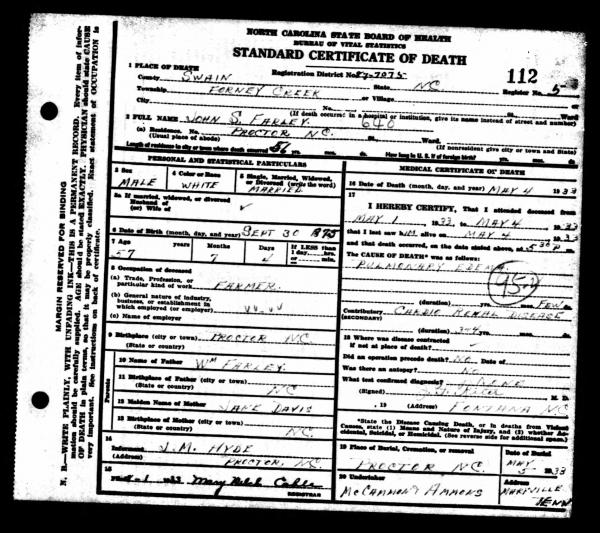 NORTH CAROLINA STATE BOARD OF HEALTH
BUREAU OF VITAL STATISTICS
STANDARD CERTIFICATE OF DEATH
1 PLACE OF DEATH
County SWAIN Registration District No. 87-7075 State NC 112
Township FORNEY CREEK or Village Register No. 5
City No. Ward
(If death occurred in a hospital or institution, give its name instead of street and number)
2 FULL NAME JOHN S. FARLEY 640
(a) Residence. No. PROCTOR N.C. St., Ward.
(Usual place of abode) (If nonresident give city or town and State)
Length of residence in city or town where death occurred yrs. mos. ds. How long in U. S. if of foreign birth? yrs. mos. ds.
PERSONAL AND STATISTICAL PARTICULARS
3 Sex MALE
4 Color or Race WHITE
5 Single, Married, Widowed, or Divorced (write the word) MARRIED
5a If married, widowed, or divorced
Husband of
(or) Wife of
6 Date of Birth (month, day, and year) SEPT 30 1875
7 Age Years Months Days If LESS than 1 day, hrs. or min.
57 7 4
8 Occupation of deceased
(a) Trade, Profession, or particular kind of work FARMER
(b) General nature of industry, business, or establishment in which employed (or employer)
(c) Name of employer
9 Birthplace (city or town) PROCTOR NC
(State or country)
Parents
10 Name of Father WM FARLEY
11 Birthplace of Father (city or town)
(State or country) NC
12 Maiden Name of Mother JANE DAVIS
13 Birthplace of Mother (city or town)
(State or country) NC.
14
Informant J. M. HYDE
(Address) PROCTOR, NC.
15
REGISTRAR
MEDICAL CERTIFICATE OF DEATH
16 Date of Death (month, day, and year) MAY 4 1933
17
I HEREBY CERTIFY, That I attended deceased from
MAY 1, 1933, to MAY 4, 1933
that I last saw him alive on MAY 4, 1933
and that death occurred, on the date stated above, at 5 30 P m.
The CAUSE OF DEATH* was as follows:
PULMONARY EDEMA
95-2
(duration) yrs. mos. FEW ds.
Contributory CARDIO RENAL DISEASE
(SECONDARY)
(duration) yrs. mos. ds.
18 Where was disease contracted
If not at place of death?
Did an operation precede death? NO Date of
Was there an autopsy? NO
What test confirmed diagnosis? NONE
(Signed) M. D.
, 19 (Address) FONTANA NC
*State the Disease Causing Death, or in deaths from Violent Causes, state (1) Means and Nature of Injury, and (2) whether Accidental, Suicidal, or Homicidal. (See reverse side for additional space.)
19 Place of Burial, Cremation, or removal Date of Burial
PROCTOR NC. MAY 5 1933
20 Undertaker Address
McCAMMON AMMONS MARYVILLE TENN
MARGIN RESERVED FOR BINDING
N. B.—WRITE PLAINLY, WITH UNFADING INK—THIS IS A PERMANENT RECORD. Every item of information should be carefully supplied. AGE should be stated EXACTLY. PHYSICIAN should state CAUSE OF DEATH in plain terms, so that it may be properly classified. Exact statement of OCCUPATION is very important. See instructions on back of certificate.